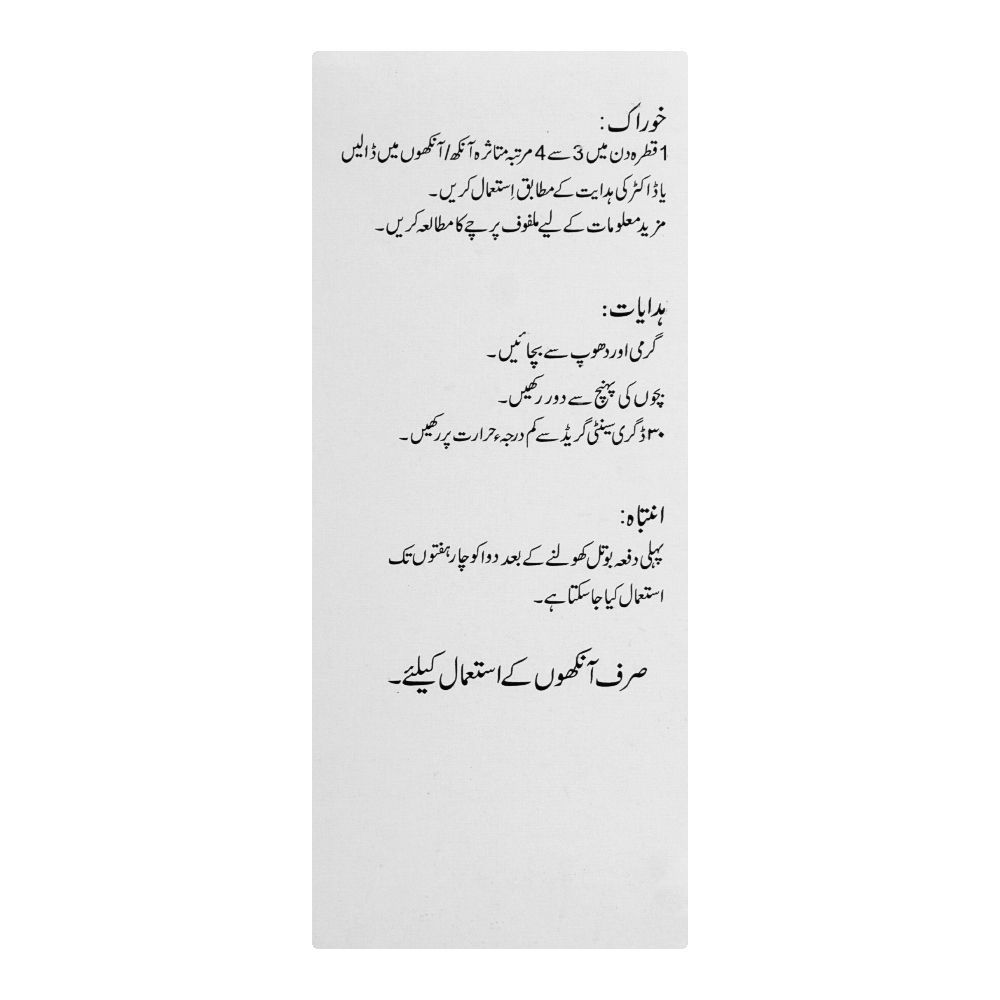 خوراک :
1 قطرہ دن میں 3 سے 4 مرتبہ متاثرہ آنکھ/آنکھوں میں ڈالیں
یا ڈاکٹر کی ہدایت کے مطابق اِستعمال کریں۔
مزید معلومات کے لیے ملفوف پرچے کا مطالعہ کریں۔
ہدایات :
گرمی اور دھوپ سے بچائیں۔
بچوں کی پہنچ سے دور رکھیں۔
۳۰ ڈگری سینٹی گریڈ سے کم درجہء حرارت پر رکھیں۔
انتباہ:
پہلی دفعہ بوتل کھولنے کے بعد دوا کو چار ہفتوں تک
استعمال کیا جاسکتا ہے۔
صرف آنکھوں کے استعمال کیلئے۔